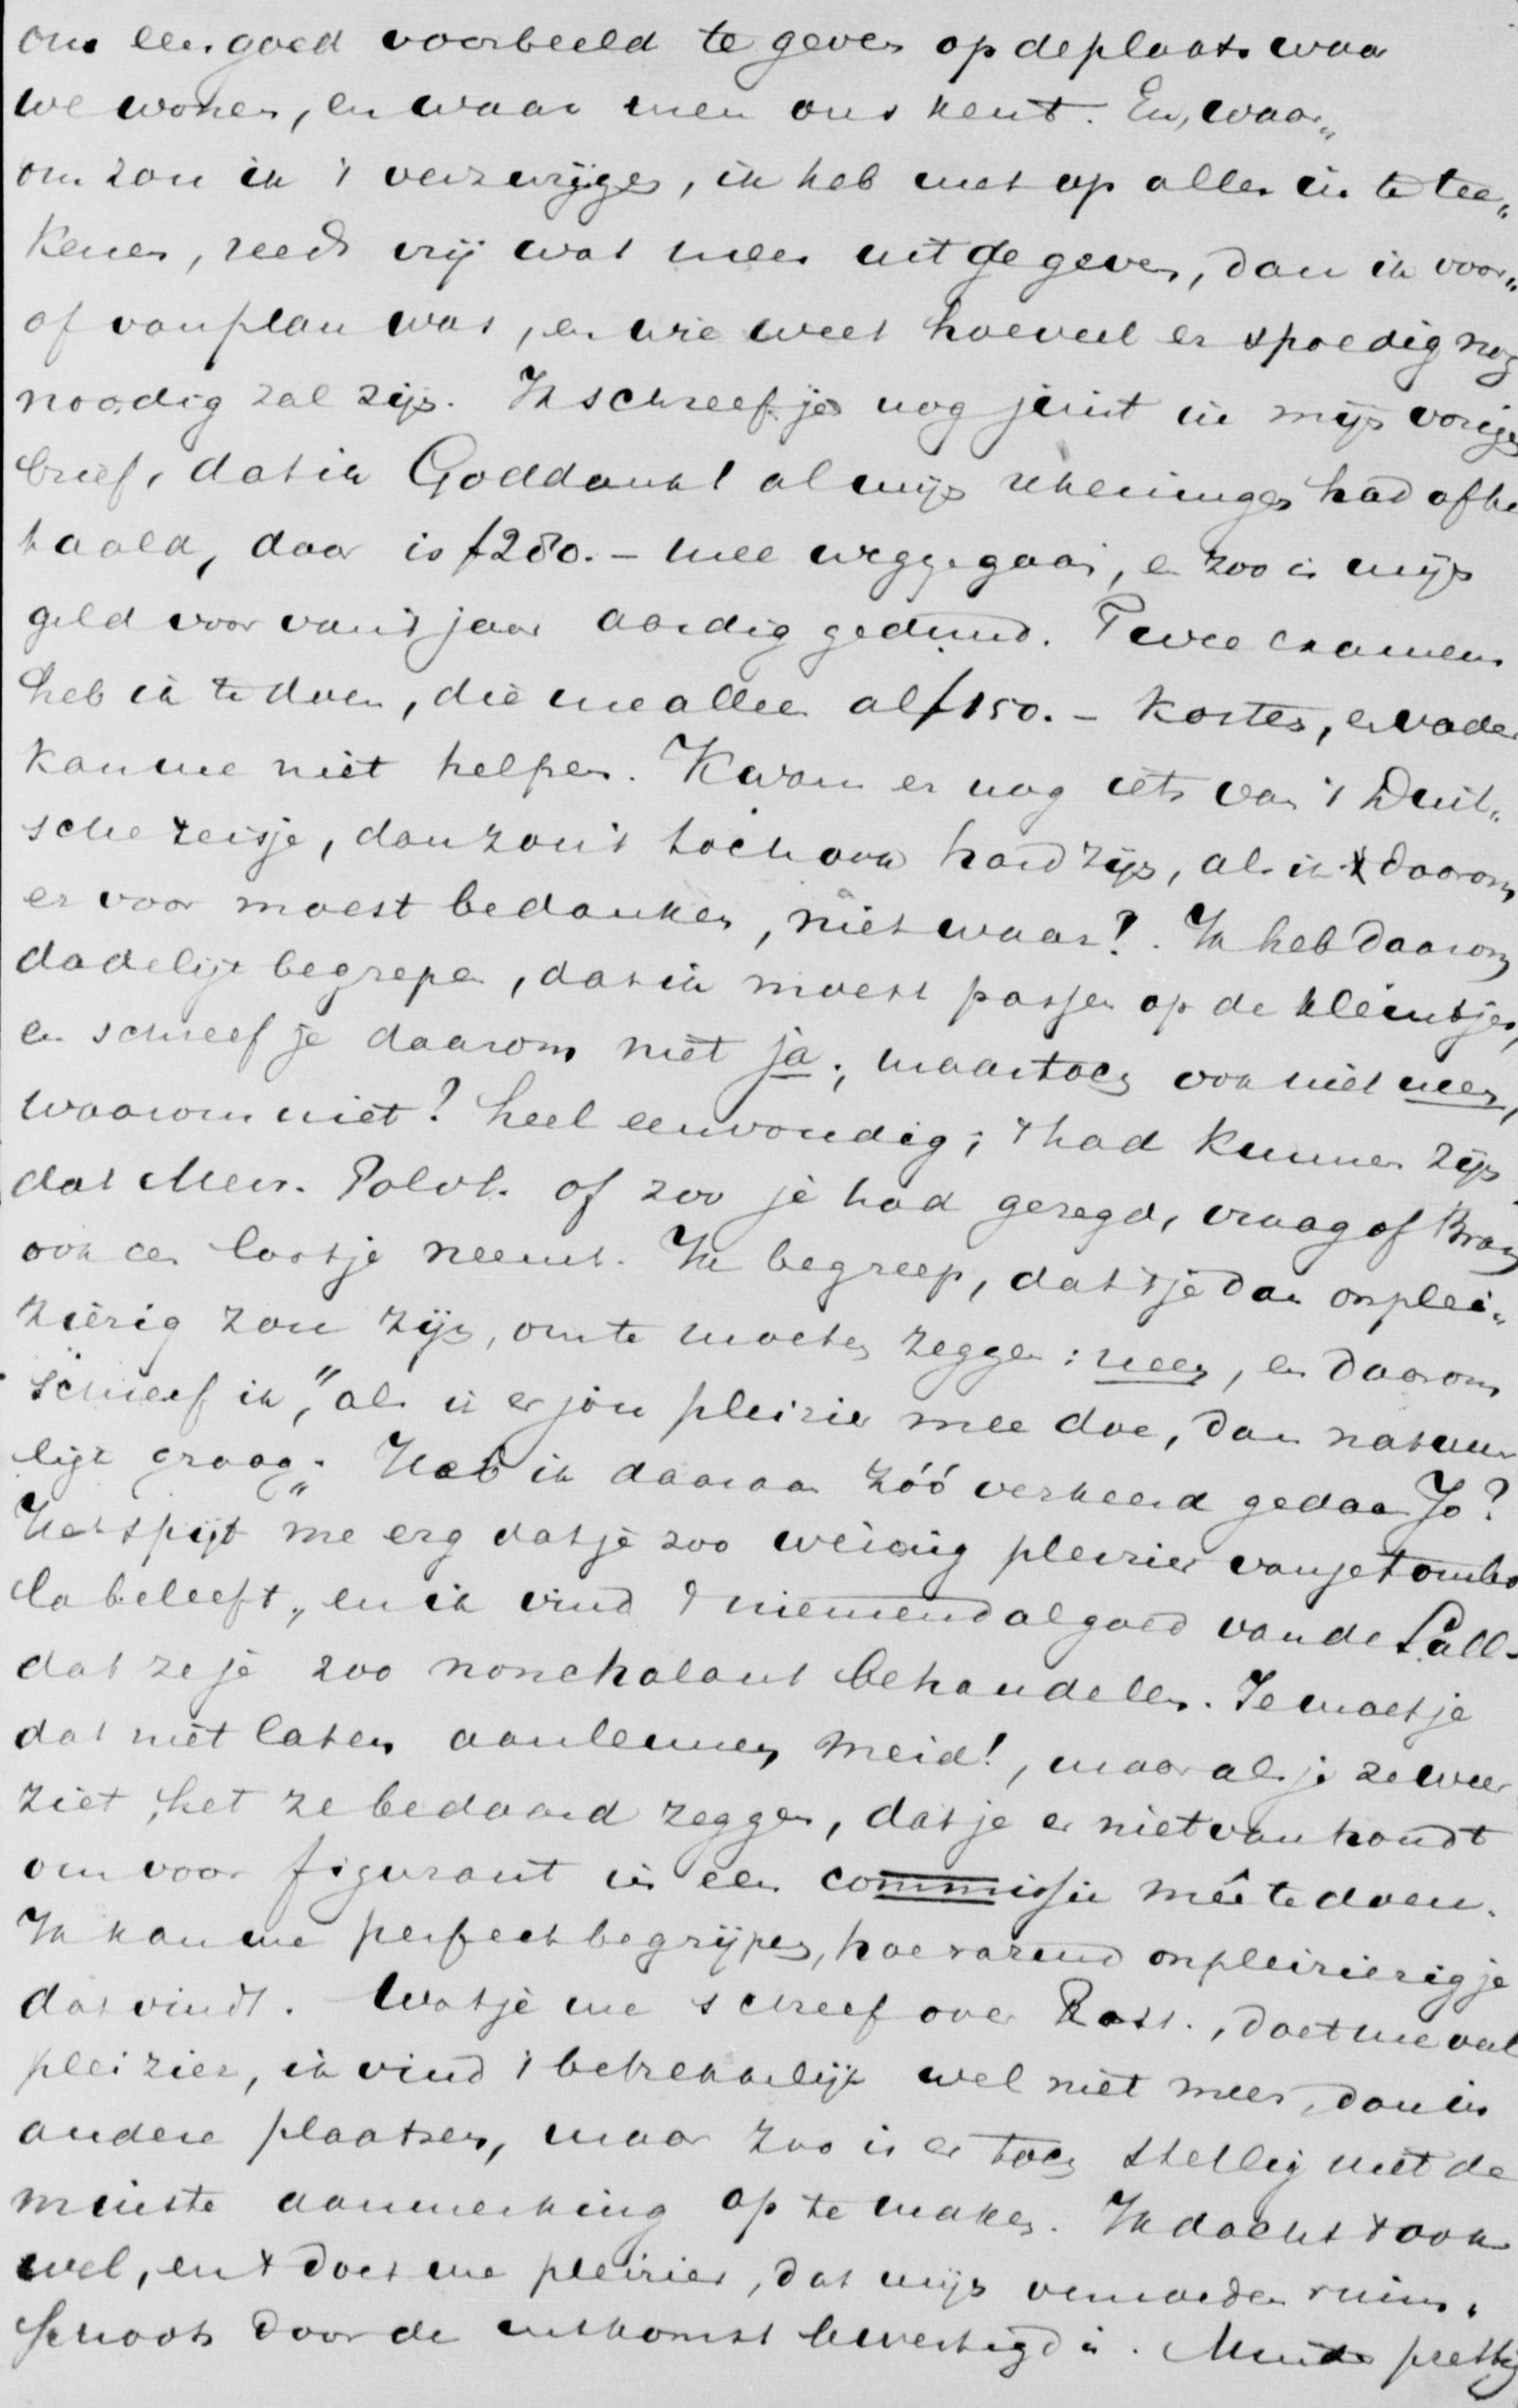 om een goed voorbeeld te geven op de plaats waar
we wonen, en waar men ons kent. En, waar„
om zou ik 't verzwijgen, ik heb met op alles in te tee„
kenen, reeds vrij wat meer uitgegeven, dan ik voor„
af van plan was, en wie weet hoeveel er spoedig nog
noodig zal zijn. Ik schreef je nog juist in mijn vorigen
brief, dat ik Goddank! al mijn rekeningen had afbe
taald, daar is f280.- mee weggegaan, en zoo is mijn
geld voor van 't jaar aardig gedund. Twee examens
heb ik te doen, die me alleen al f150.- kosten, en vader
kan me niet helpen. Kwam er nog iets van 't Duit„
sche reisje, dan zou 't toch ook hard zijn, als ik daarom
er voor moest bedanken, niet waar?. Ik heb daarom
dadelijk begrepen, dat ik moest passen op de kleintjes,
en schreef je daarom niet ja; maar toch ook niet neen,
waarom niet? heel eenvoudig; 't had kunnen zijn
dat Mevr. Polvl. of zoo je had gezegd, vraag of Bram
ook een lootje neemt. Ik begreep, dat 't je dan onplei„
zierig zou zijn, om te moeten zeggen: neen, en daarom
schreef ik, "als ik er jou pleizier mee doe, dan natuur
lijk graag„. Heb ik daaraan zóó verkeerd gedaan Jo?
Het spijt me erg dat je zoo weinig pleizier van je tombo
la beleeft, en ik vind 't niemendal goed van de Pall.
dat ze je zoo nonchalant behandelen. Je moet je
dat niet laten aanleunen meid!, maar als je ze weer
ziet, het ze bedaard zeggen, dat je er niet van houdt
om voor figurant in een commissie meê te doen.
Ik kan me perfect begrijpen, hoe razend onpleizierig je
dat vindt. Wat je me schreef over Rott., doet me veel
pleizier, ik vind 't betrekkelijk wel niet meer, dan in
andere plaatsen, maar zoo is er toch stellig niet de
minste aanmerking op te maken. Ik dacht 't ook
wel, en 't doet me pleizier, dat mijn vermoeden ruim„
schoots door de uitkomst bevestigd is. Minder prettig